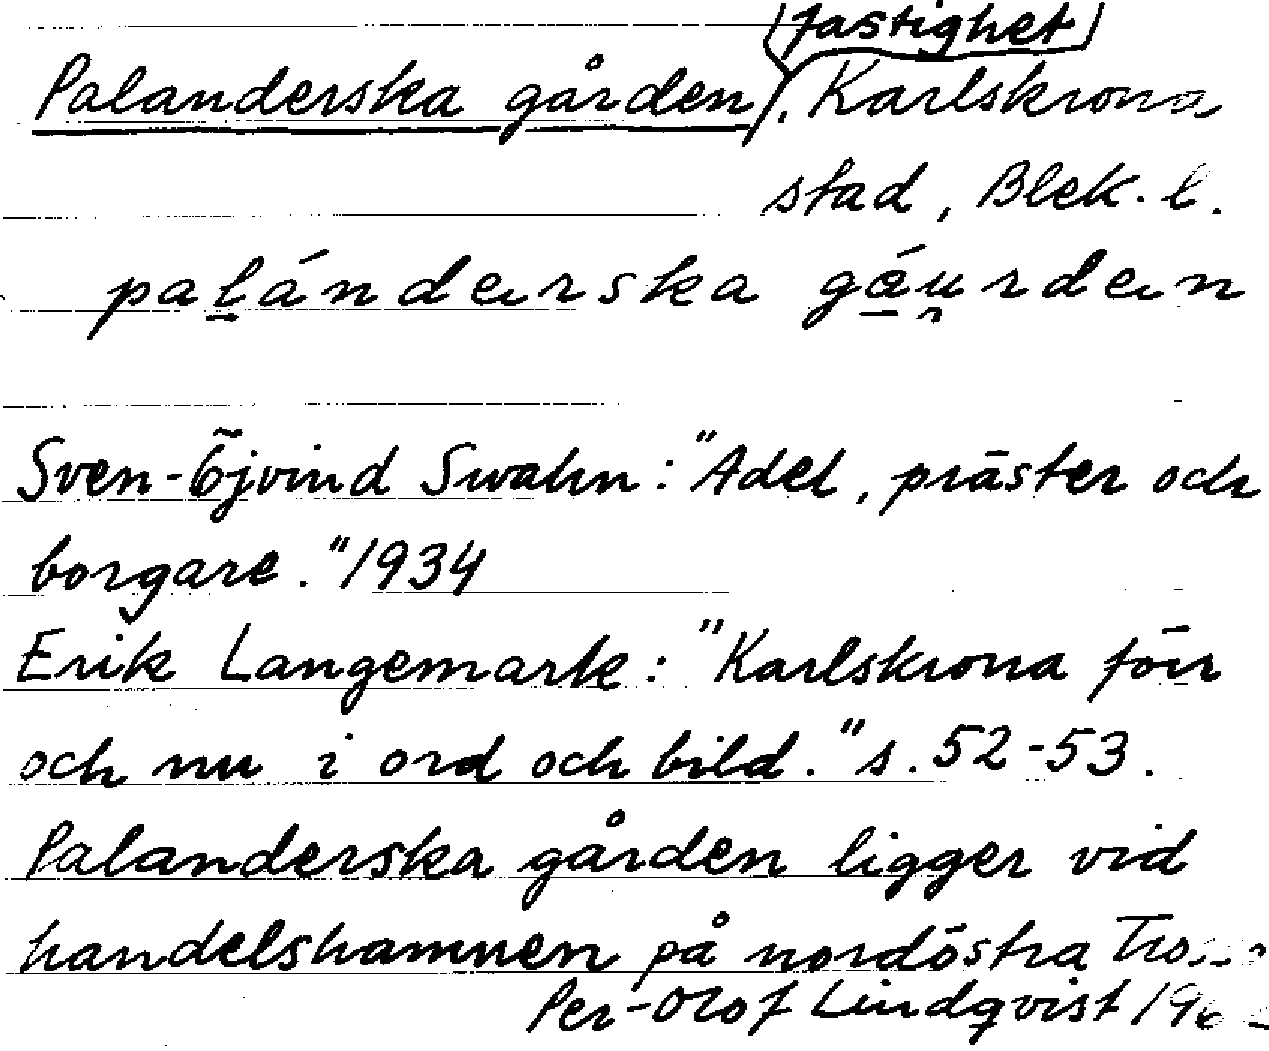 (fastighet)
Palanderska gården, Karlskrona
stad, Blek. l.
palánderska gáurden
Sven-Öjvind Swahn: "Adel, präster och
borgare." 1934
Erik Langemark: "Karlskrona förr
och nu i ord och bild." s. 52-53.
Palanderska gården ligger vid
handelshamnen på nordöstra
Per-Olof Lindqvist